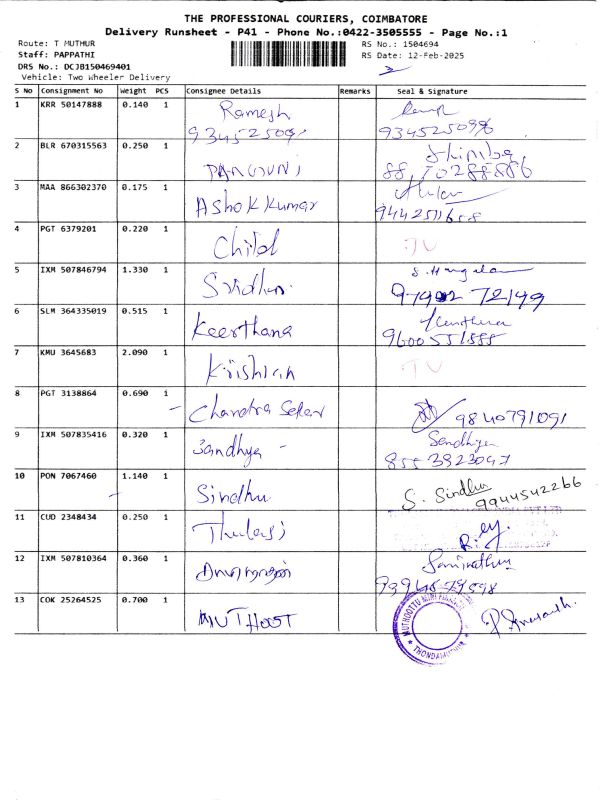 THE PROFESSIONAL COURIERS, COIMBATORE
Delivery Runsheet - P41 - Phone No.:0422-3505555 - Page No.:1
Route: T MUTHUR
RS No.: 1504694
Staff: PAPPATHI
RS Date: 12-Feb-2025
DRS No.: DCJB150469401
Vehicle: Two Wheeler Delivery
S No Consignment No Weight PCS Consignee Details Remarks Seal & Signature
1 KRR 50147888 0.140 1 Ramesh
9345250996
2 BLR 670315563 0.250 1
3 MAA 866302370 0.175 1 Ashok Kumar
4 PGT 6379201 0.220 1 Child
5 IXM 507846794 1.330 1
6 SLM 364335019 0.515 1 Keerthana
9600551888
7 KMU 3645683 2.090 1 Krishian
8 PGT 3138864 0.690 1 Chandra Seker 9840791091
9 IXM 507835416 0.320 1 Sandhya - Sandhya
8553823047
10 PON 7067460 1.140 1 Sindhu S. Sindhu
9944542266
11 CUD 2348434 0.250 1 Thulasi
12 IXM 507810364 0.360 1
13 COK 25264525 0.700 1 MUTHOOT
THONDAMUTHUR